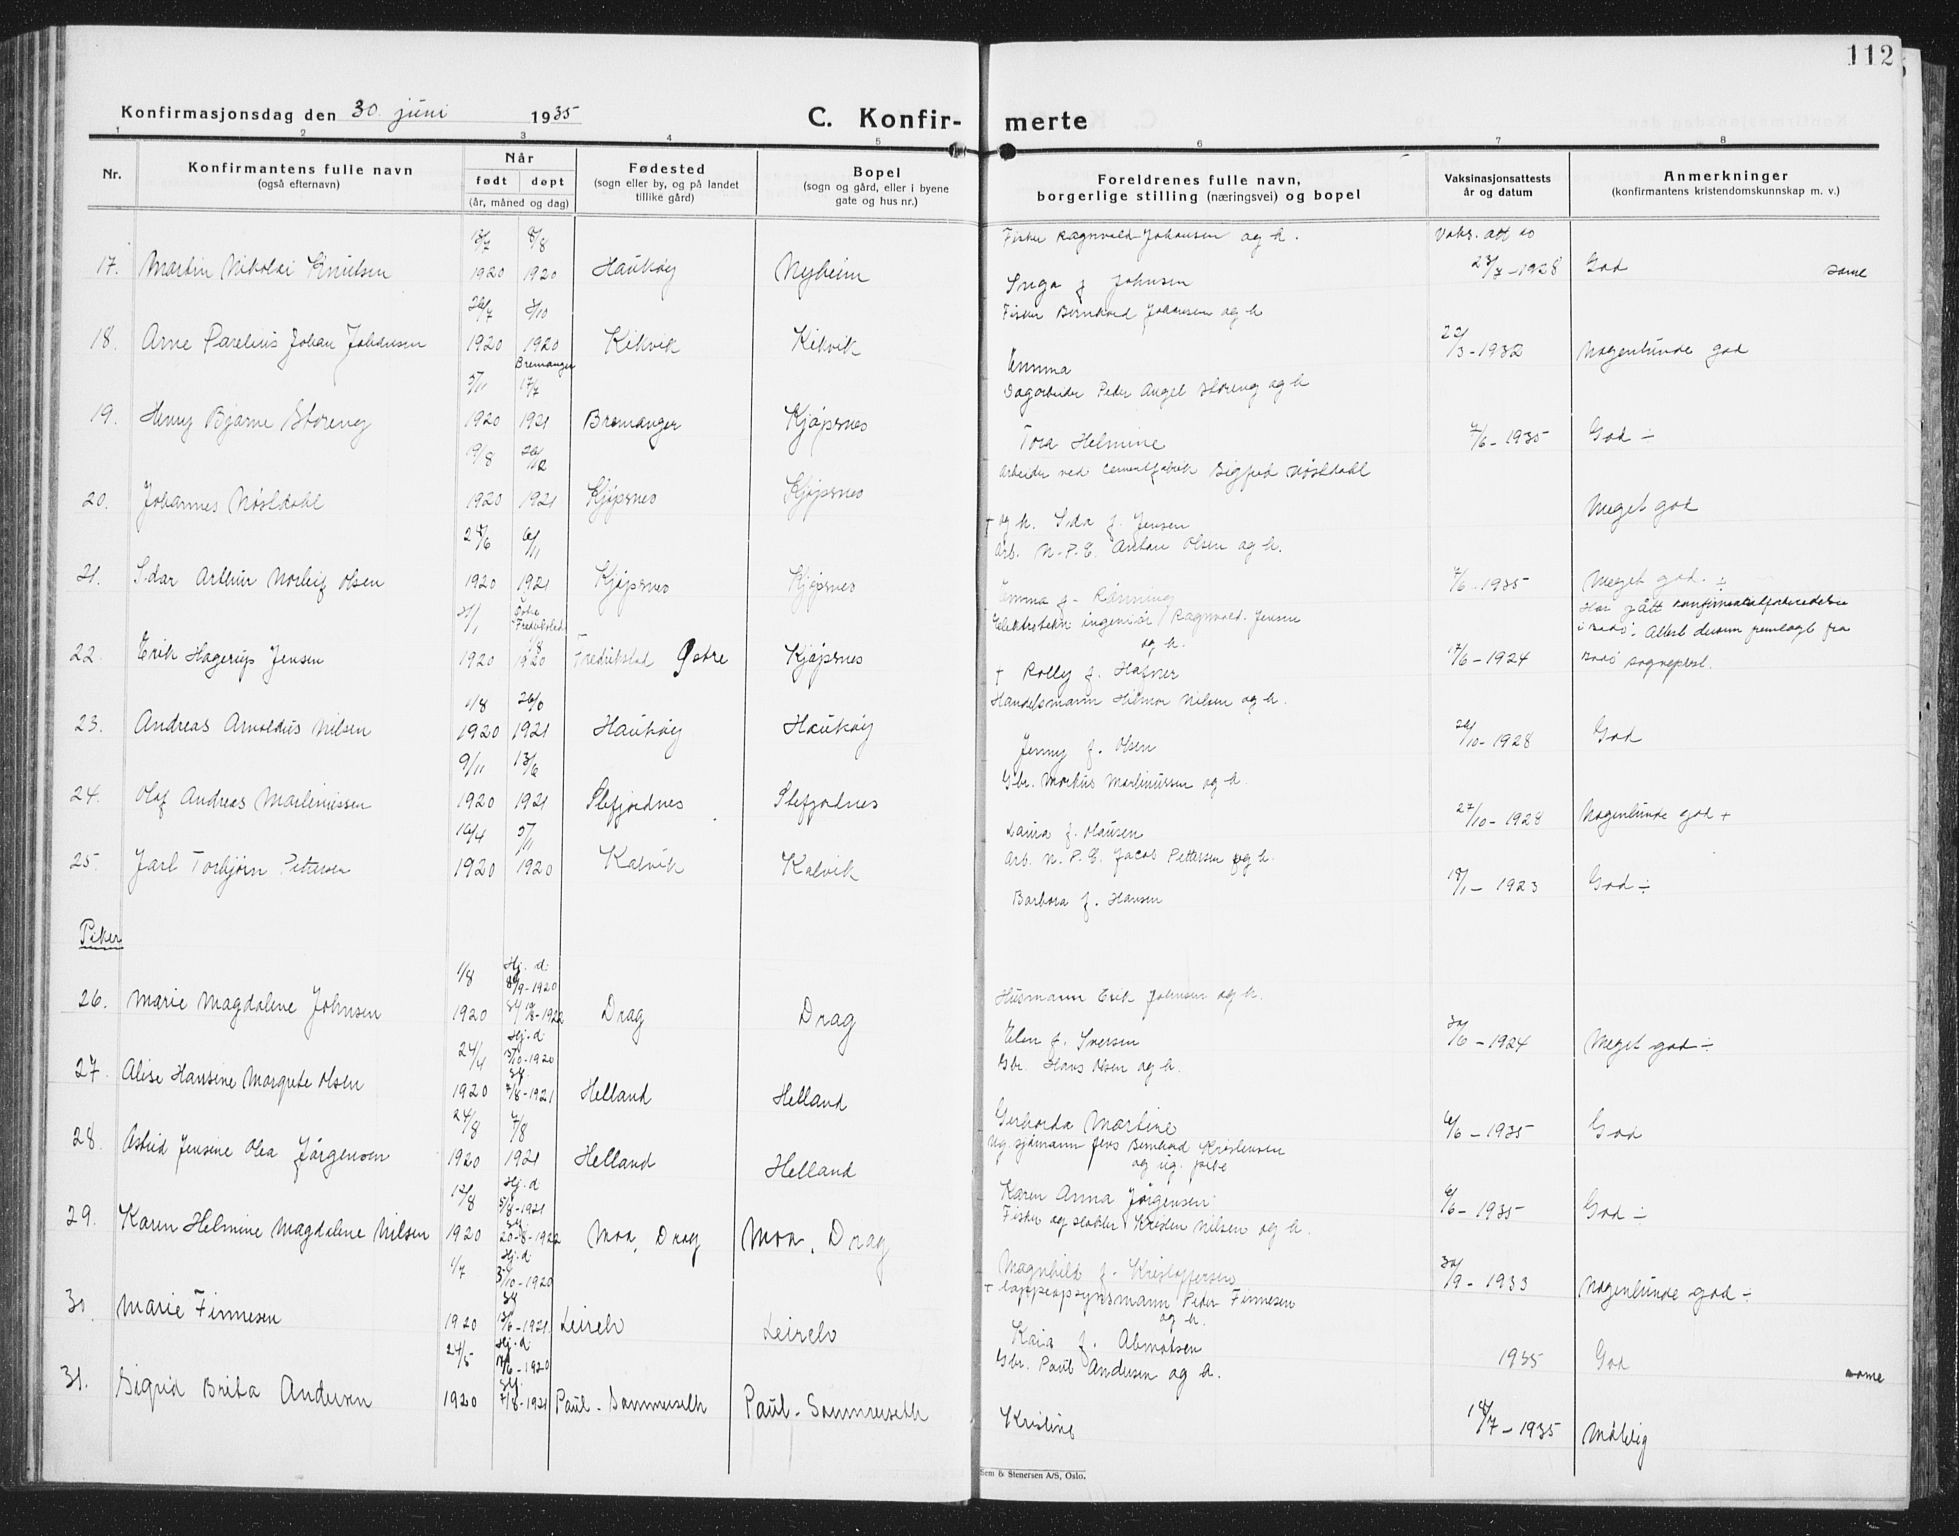 112
Konfirmasjonsdag den 30. juni 1935
C. Konfir- merte
1 2 3 4 5 6 7 8
Nr.
Konfirmantens fulle navn
(også efternavn)
Når
født døpt
(år, måned og dag)
Fødested
(sogn eller by, og på landet
tillike gård)
Bopel
(sogn og gård, eller i byene
gate og hus nr.)
Foreldrenes fulle navn,
borgerlige stilling (næringsvei) og bopel
Vaksinasjonsattests
år og datum
Anmerkninger
(konfirmantens kristendomskunnskap m. v.)
8/8 Fisker Ragnvald Johansen og h. Vaks. att
17. Martin Nikolai Knutsen 1920 1920 Haukøy Nyheim Inga f. Johnsen -1928 God same
26/7 3/10 Fisker Bernhard Johansen og h
18. Arne Parelius Johan Johansen 1920 1920 Kikvik Kikvik Emma 22/3-1932 Nogenlunde god
Bremanger
5/11 17/7 Dagarbeider Peder Angel Storeng og h
19. Henry Bjarne Storeng 1920 1921 Bremanger Kjøpsnes Tora Helmine 7/6-1935 God ÷
19/8 26/12 Arbeider ved cementfabrik Sigfred Nøstdahl
20. Johannes Nøstdahl 1920 1921 Kjøpsnes Kjøpsnes + og h. Ida f. Jensen Meget god
24/6 6/11 Arb. N.P.C. Anton Olsen og h.
21. Idar Arthur Norleif Olsen 1920 1921 Kjøpsnes Kjøpsnes Emma f. Rønning 7/6-1935 Meget god. ÷
Østre
Fredrikstad
1/8
Elektrotekn. ingeniør Ragnvald Jensen
og h.
Har gått konfirmantforberedelse
i Bodø. Attest derom fremlagt fra
22. Erik Hagerup Jensen 1920 1920 Fredrikstad Østre Kjøpsnes + Rolly f. Hafner 17/6-1924 Bodø sogneprest.
1/8 Handelsmann Hilmar Nilsen og h.
23. Andreas Arnoldus Nilsen 1920 1921 Haukøy Haukøy Jenny f. Olsen 26/10-1928 God
9/11 13/6 Gbr. Markus Martinussen og h.
24. Olaf Andreas Martinussen 1920 1921 Stefjordnes Stefjordnes Laura f. Olausen 27/10-1928 Nogenlunde god +
5/11 Arb. N.P.C. Jacob Pettersen og h.
25. Jarl Torbjørn Pettersen 1920 1920 Kalvik Kalvik Barbara f. Hansen 18/1-1923 God ÷
Piker
1/8 Hj. d. /9-1920 Husmann Erik Johnsen og h.
26. Marie Magdalene Johnsen 1920 /8-1922 Drag Drag Elen f. Iversen 30/6-1924 Meget god ÷
24/4 Hj. d. 3/10-1920 Gbr. Hans Olsen og h.
27. Alise Hansine Margrete Olsen 1920 7/8-1921 Helland Helland Gerharda Martine 6/6-1935 God
24/8 7/8 Ug. sjømann Jens Bernhard Kristensen
og ug. pike
28. Astrid Jensine Olea Jørgensen 1920 1921 Helland Helland Karen Anna Jørgensen 6/6-1935 God ÷
12/8 Hj. d 5/8-1921 Fisker og slakter Kristen Nilsen og h.
29. Karen Helmine Magdalene Nilsen 1920 20-8-1922 Moa, Drag Moa, Drag Magnhild f. Kristoffersen 30/9-1933 Nogenlunde god ÷
1/7 Hj. d. 3/10-1920 + lappeopsynsmann Peder Finnesen
og h.
30 Marie Finnesen 1920 /6-1921 Leirelv Leirelv Kaia f. Abmotsen 1935 God same
24/5 Hj. d. /6-1920 Gbr. Paul Andersen og h.
31. Sigrid Brita Andersen 1920 7/8-1921 Paul-Sommerseth Paul-Sommerseth Kristine 18/7-1935 Måtelig
Sem & Stenersen A/S, Oslo.